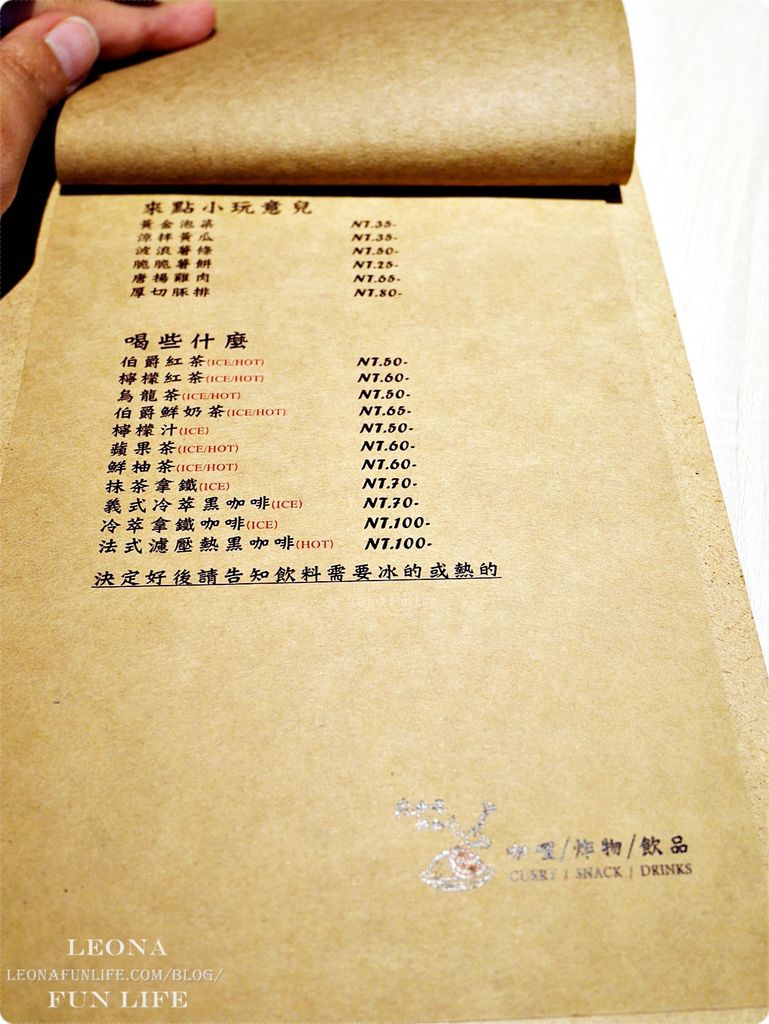 來點小玩意兒
黃金泡菜 NT.35-
涼拌黃瓜 NT.35-
波浪薯條 NT.50-
脆脆薯餅 NT.25-
唐揚雞肉 NT.65-
厚切豚排 NT.80-
喝些什麼
伯爵紅茶(ICE/HOT) NT.50-
檸檬紅茶(ICE/HOT) NT.60-
烏龍茶(ICE/HOT) NT.50-
伯爵鮮奶茶(ICE/HOT) NT.65-
檸檬汁(ICE) NT.50-
蘋果茶(ICE/HOT) NT.60-
鮮柚茶(ICE/HOT) NT.60-
抹茶拿鐵(ICE) NT.70-
義式冷萃黑咖啡(ICE) NT.70-
冷萃拿鐵咖啡(ICE) NT.100-
法式濾壓熱黑咖啡(HOT) NT.100-
決定好後請告知飲料需要冰的或熱的
咖哩/炸物/飲品
CURRY / SNACK / DRINKS
LEONA
LEONAFUNLIFE.COM/BLOG/
FUN LIFE